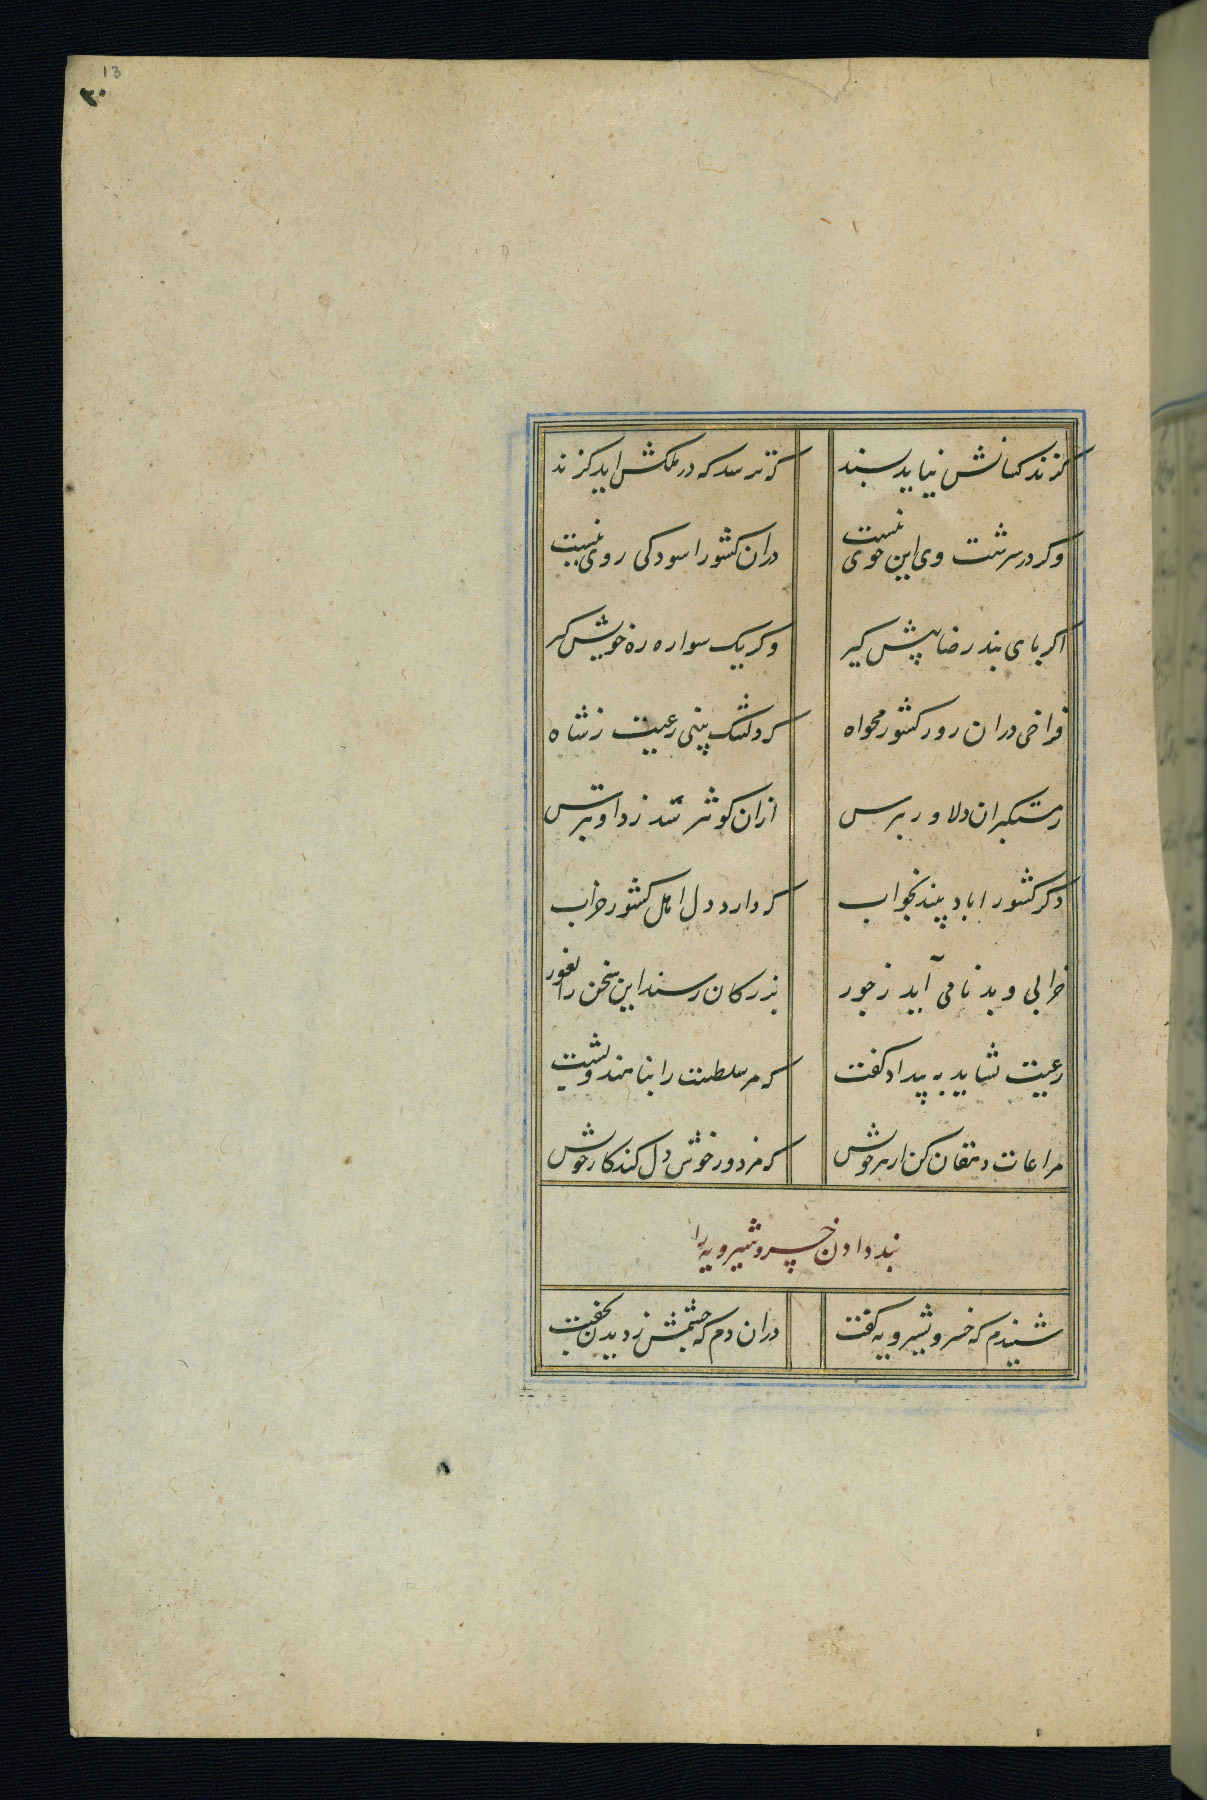 13
۲۰
کزند کسانش نیاید بسند که ترسد که در ملکش اید کزند
وکر در سرشت وی این خوی نیست دران کشور اسودکی روی نیست
اکر بای بند رضا پیش کیر وکر یک سواره ره خویش کیر
فراخی دران رور کشور مخواه که دلتنک بینی رعیت ز شاه
ز مستکبران دلاور بترس ازان کو نترسد ز داور بترس
دکر کشور اباد بیند بخواب که دارد دل اهل کشور خراب
خرابی و بدنامی آید ز جور بزرکان رسند این سخن را بغور
رعیت نشاید به بیداد کفت که مر سلطنت را بناهند وبشت
مراعات دهقان کن از بهر خویش که مزدور خوش دل کند کار خویش
بند دادن خسرو شیرویه را
شنیدم که خسرو بشیرویه کفت دران دم که چشمش ز دیدن بخفت